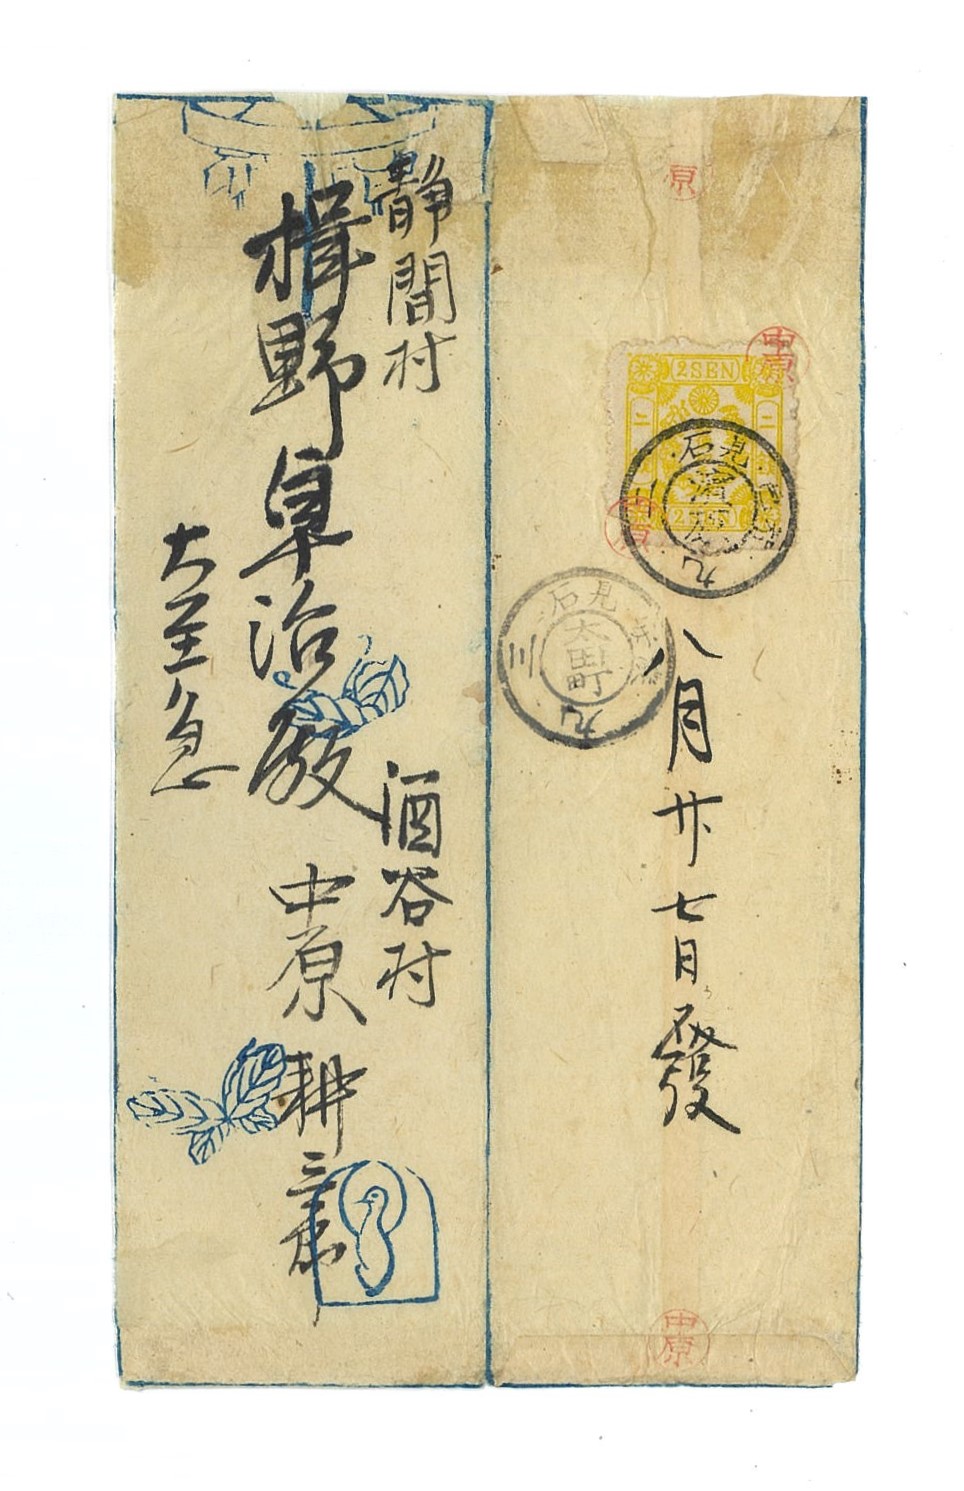 原
中原
2SEN
二 二
2SEN
石見
濱
九
石見
太田町
三
九
八月廿七日發
中原
静間村
楫野阜治殿
大至急
酒谷村
中原耕三郎